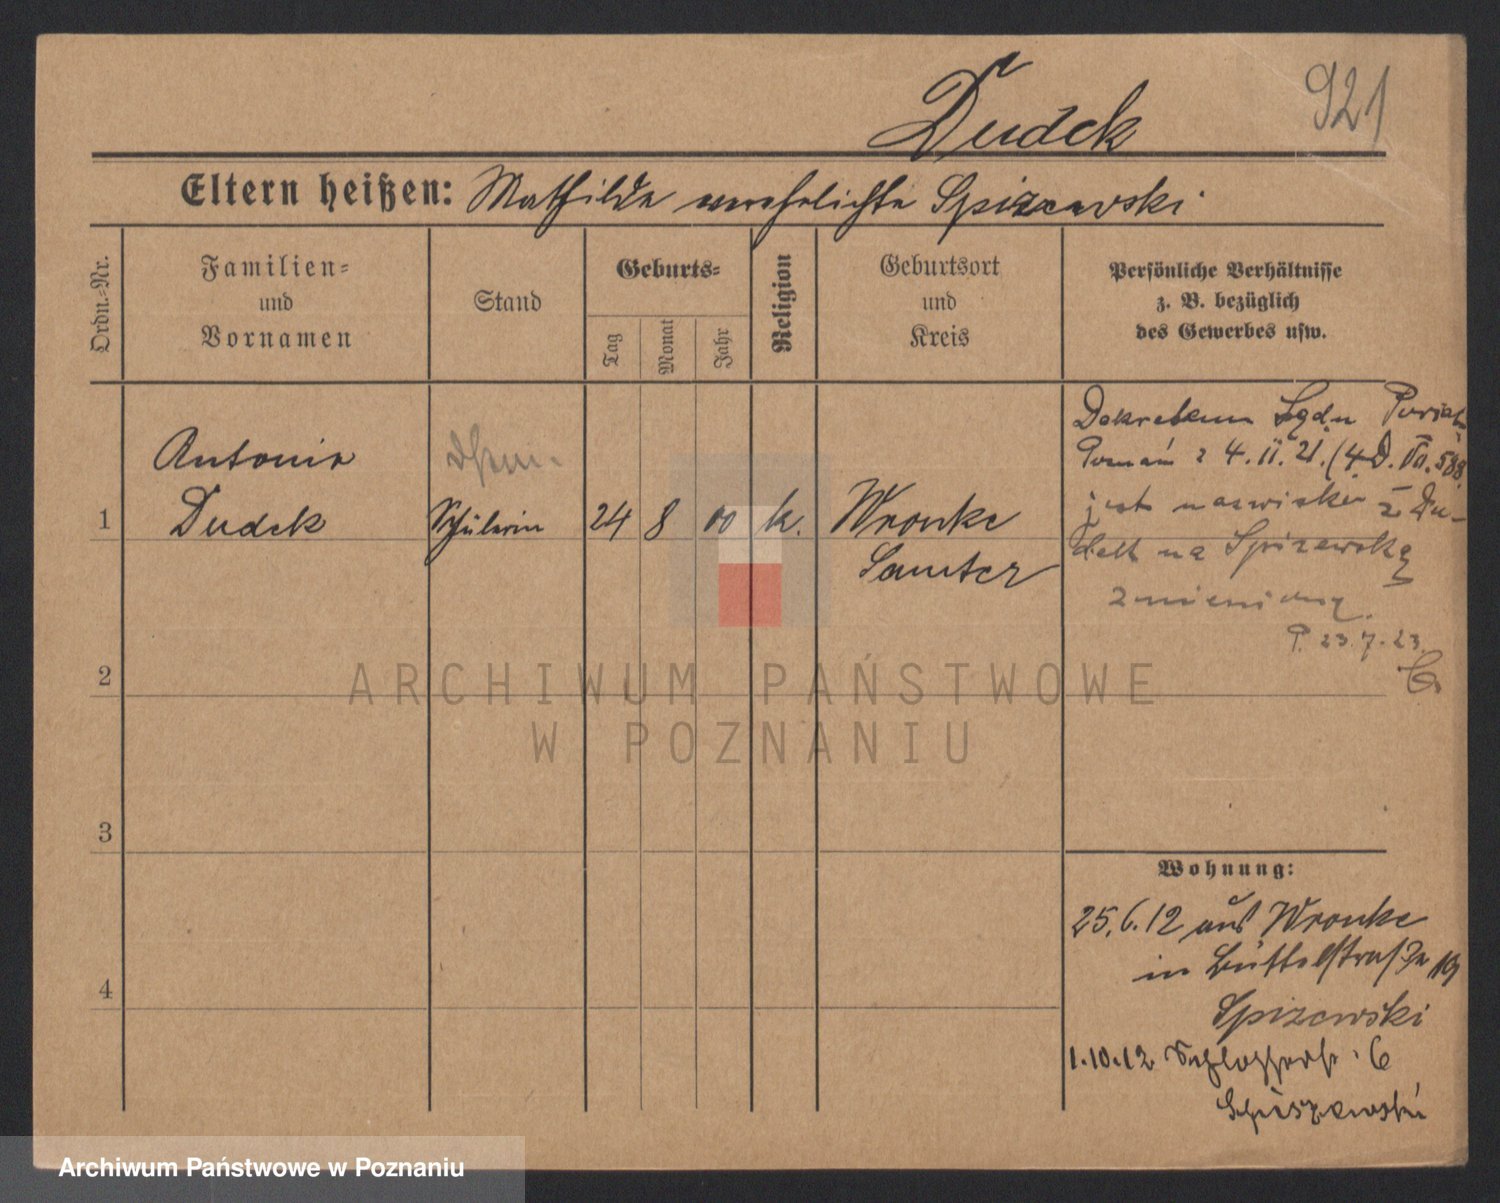 921
Dudek
Eltern heißen: Mathilde verehelichte Spizewski
Ordn.=Nr.
Familien=
und
Vornamen
Stand
Geburts=
Tag
Monat
Jahr
Religion
Geburtsort
und
Kreis
Persönliche Verhältnisse
z. B. bezüglich
des Gewerbes usw.
1
Antonie
Dudek
Schülerin
24
8
00
k.
Wronke
Samter
Dekretem Sądu Powiat.
Poznań z 4.II.21. (4 D.
jest nazwisko z Du-
dek na Spizewską
zmienione.
P. 23.7.23.
2
3
4
Wohnung:
25.6.12 aus Wronke
in Büttelstraße 19
Spizewski
1.10.12 Schlosserstr. 6
Spiszewski
ARCHIWUM PAŃSTWOWE
W POZNANIU
Archiwum Państwowe w Poznaniu